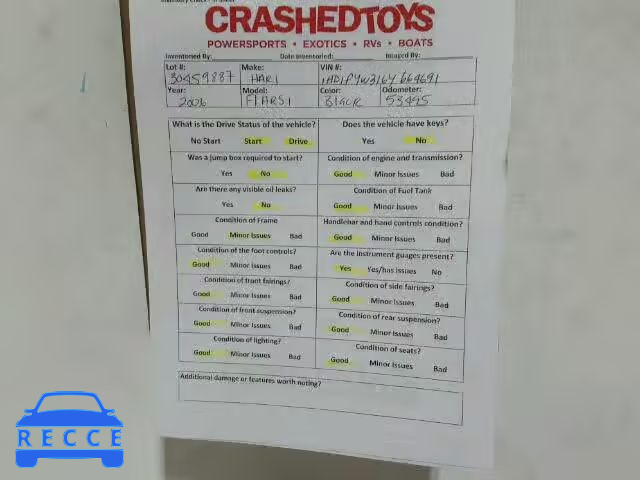 CRASHEDTOYS
POWERSPORTS • EXOTICS • RVs • BOATS
Inventoried By: Date Inventoried: Imaged By:
Lot #: Make: VIN #:
30459887 HARI 1HD1PYW316Y664691
Year: Model: Color: Odometer:
2006 FLHRSI Black 53495
What is the Drive Status of the vehicle? Does the vehicle have keys?
No Start Start Drive Yes No
Was a jump box required to start? Condition of engine and transmission?
Yes No Good Minor Issues Bad
Are there any visible oil leaks? Condition of Fuel Tank
Yes No Good Minor Issues Bad
Condition of Frame Handlebar and hand controls condition?
Good Minor Issues Bad Good Minor Issues Bad
Condition of the foot controls? Are the instrument guages present?
Good Minor Issues Bad Yes Yes/has issues No
Condition of front fairings? Condition of side fairings?
Good Minor Issues Bad Good Minor Issues Bad
Condition of front suspension? Condition of rear suspension?
Good Minor Issues Bad Good Minor Issues Bad
Condition of lighting? Condition of seats?
Good Minor Issues Bad Good Minor Issues Bad
Additional damage or features worth noting?
RECCE